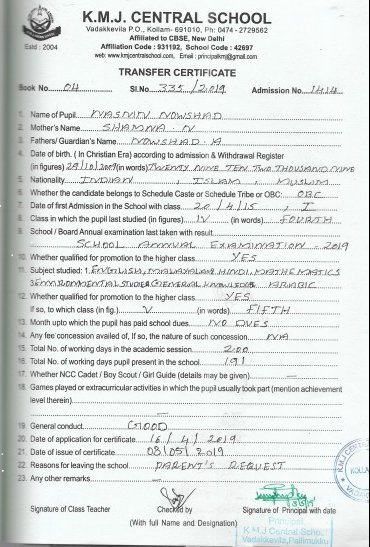 K.M.J. CENTRAL SCHOOL
Vadakkevila P.O., Kollam- 691010, Ph: 0474 - 2729562
Affiliated to CBSE, New Delhi
Affiliation Code : 931192, School Code : 42697
web: www.kmjcentralschool.com, Email : principalkmj@gmail.com
Estd : 2004
TRANSFER CERTIFICATE
Book No. 04 Sl.No. 335/2019 Admission No. 1414
1. Name of Pupil NASNIN NOWSHAD
2. Mother's Name SHAMNA . N
3. Fathers/ Guardian's Name NOWSHAD . A
4. Date of birth. ( In Christian Era) according to admission & Withdrawal Register
(in figures) 29/10/2009 (in words) TWENTY NINE TEN TWO THOUSAND NINE
5. Nationality INDIAN ISLAM, MUSLIM
6. Whether the candidate belongs to Schedule Caste or Schedule Tribe or OBC: OBC
7. Date of first Admission in the School with class 20/4/15, I
8. Class in which the pupil last studied (in figures) IV (in words) FOURTH
9. School / Board Annual examination last taken with result
SCHOOL ANNUAL EXAMINATION - 2019
10. Whether qualified for promotion to the higher class YES
11. Subject studied: 1 ENGLISH, MALAYALAM HINDI, MATHEMATICS
ENVIRONMENTAL STUDIES GENERAL KNOWLEDGE ARABIC
12. Whether qualified for promotion to the higher class YES
If so, to which class (in fig.) V (in words) FIFTH
13. Month upto which the pupil has paid school dues NO DUES
14. Any fee concession availed of, If so, the nature of such concession NA
15. Total No. of working days in the academic session 200
16. Total No. of working days pupil present in the school 191
17. Whether NCC Cadet / Boy Scout / Girl Guide (details may be given)
18. Games played or extracurricular activities in which the pupil usually took part (mention achievement
level therein)
19. General conduct GOOD
20. Date of application for certificate 16/4/2019
21. Date of issue of certificate 03/05/2019
22. Reasons for leaving the school PARENT'S REQUEST
23. Any other remarks
Signature of Class Teacher Checked by Signature of Principal with date
(With full Name and Designation)
Principal
K M J Central School
Vadakkevila, Pallimukku